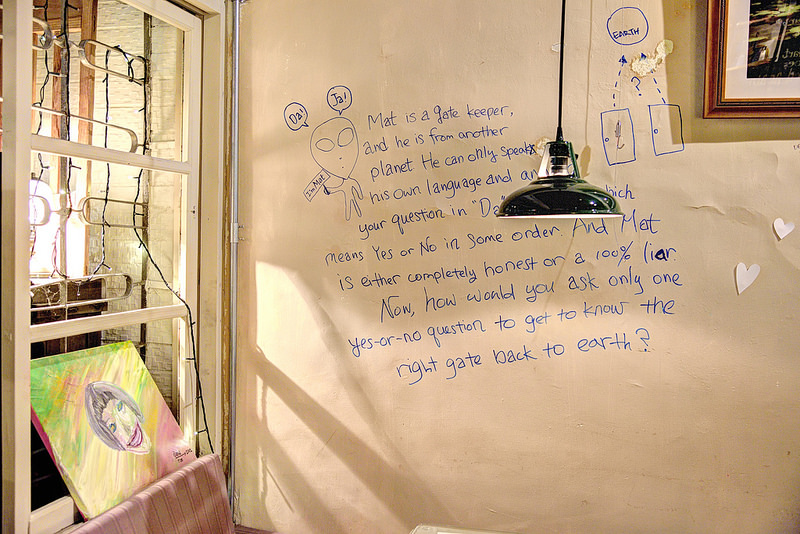 EARTH
?
Da!
Ja!
I'm Mat
Mat is a gate keeper,
and he is from another
planet. He can only speak
his own language and
your question in "Da
means Yes or No in some order. And Mat
is either completely honest or a 100% liar.
Now, how would you ask only one
yes-or-no question to get to know the
right gate back to earth?